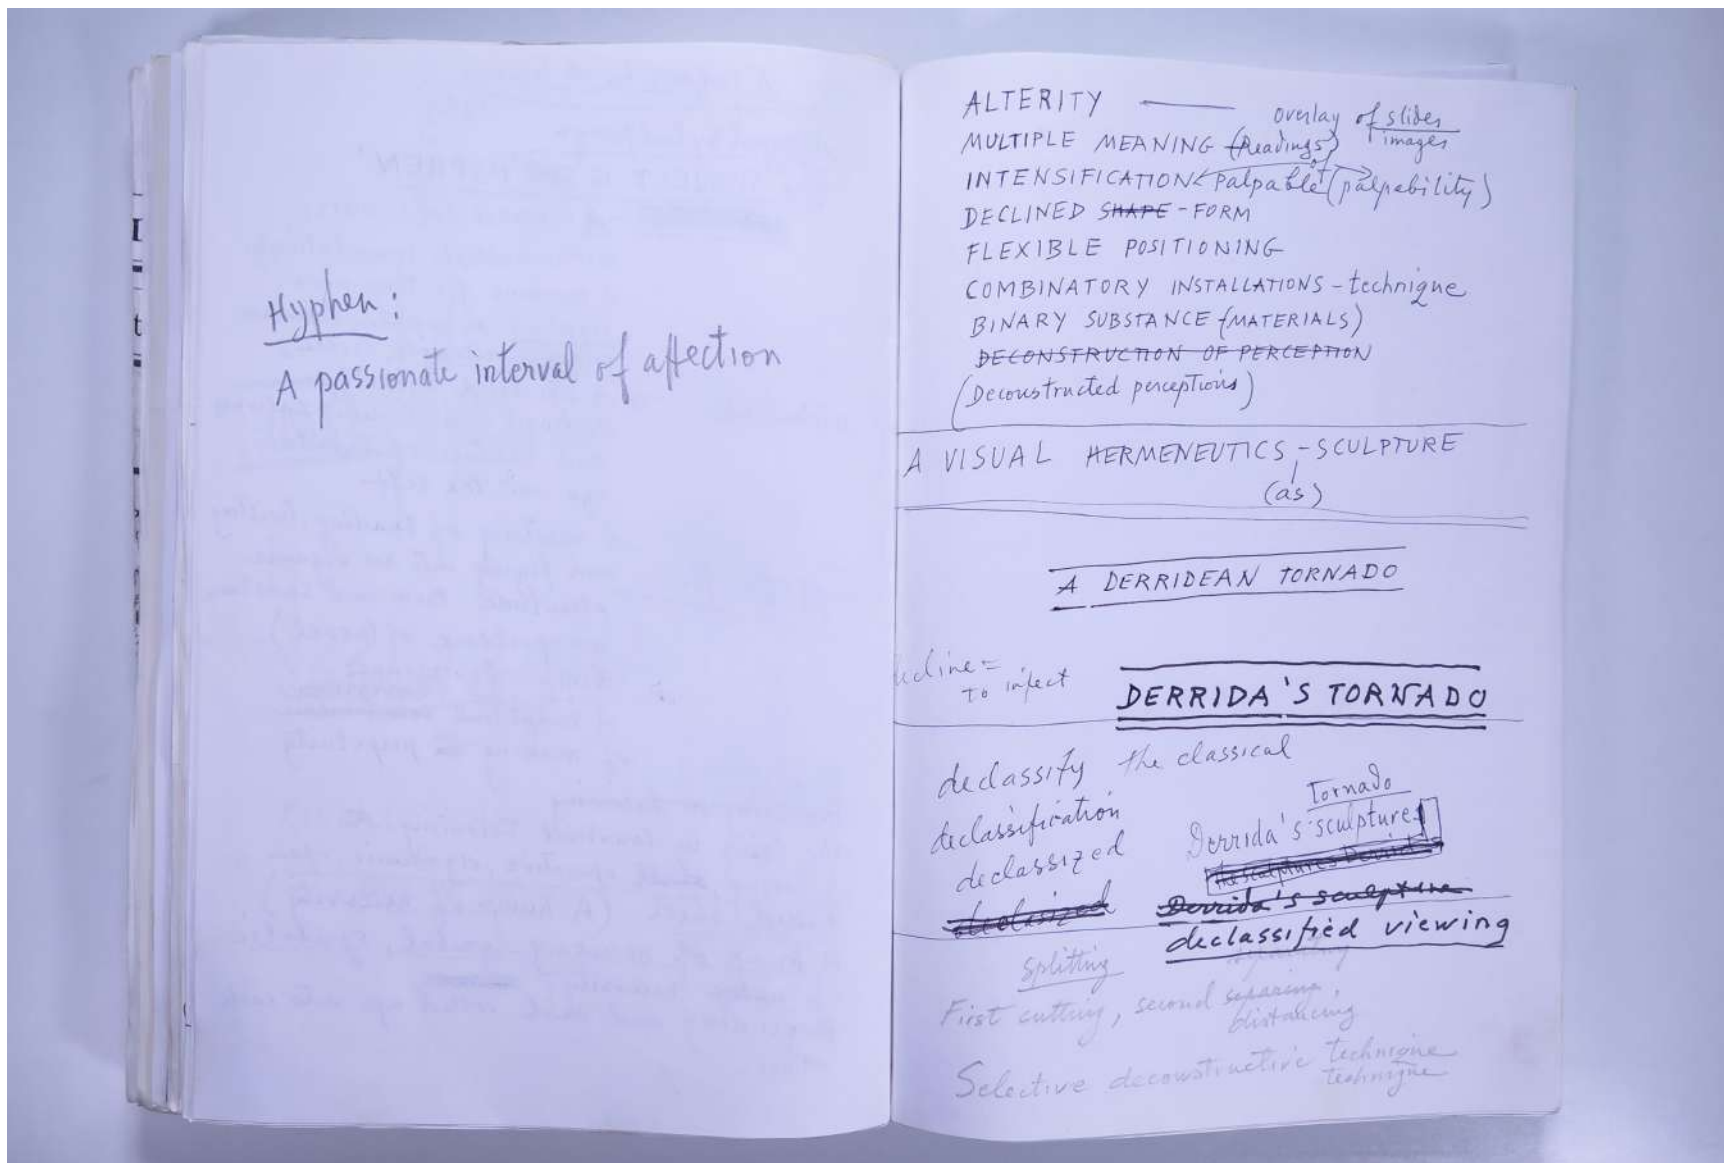 Hyphen:
A passionate interval of affection
ALTERITY — overlay of slides
images
MULTIPLE MEANING (Readings)
of
INTENSIFICATION palpable (palpebility)
DECLINED SHAPE - FORM
FLEXIBLE POSITIONING
COMBINATORY INSTALLATIONS - technique
BINARY SUBSTANCE (MATERIALS)
DECONSTRUCTION OF PERCEPTION
(Deconstructed perceptions)
A VISUAL HERMENEUTICS - SCULPTURE
(as)
A DERRIDEAN TORNADO
decline =
to infect
DERRIDA'S TORNADO
declassify the classical
declassification
declassized
declasized
Tornado
Derrida's sculpture
the sculptures Derrida
Derrida's sculpture
declassified viewing
splitting
First cutting, second separing,
distancing
Selective deconstructive technique
technique